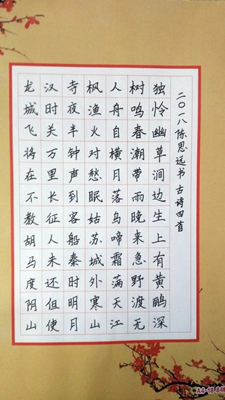 二〇一八陈思远书 古诗四首
独怜幽草涧边生上有黄鹂深
树鸣春潮带雨晚来急野渡无
人舟自横月落乌啼霜满天江
枫渔火对愁眠姑苏城外寒山
寺夜半钟声到客船秦时明月
汉时关万里长征人未还但使
龙城飞将在不教胡马度阴山